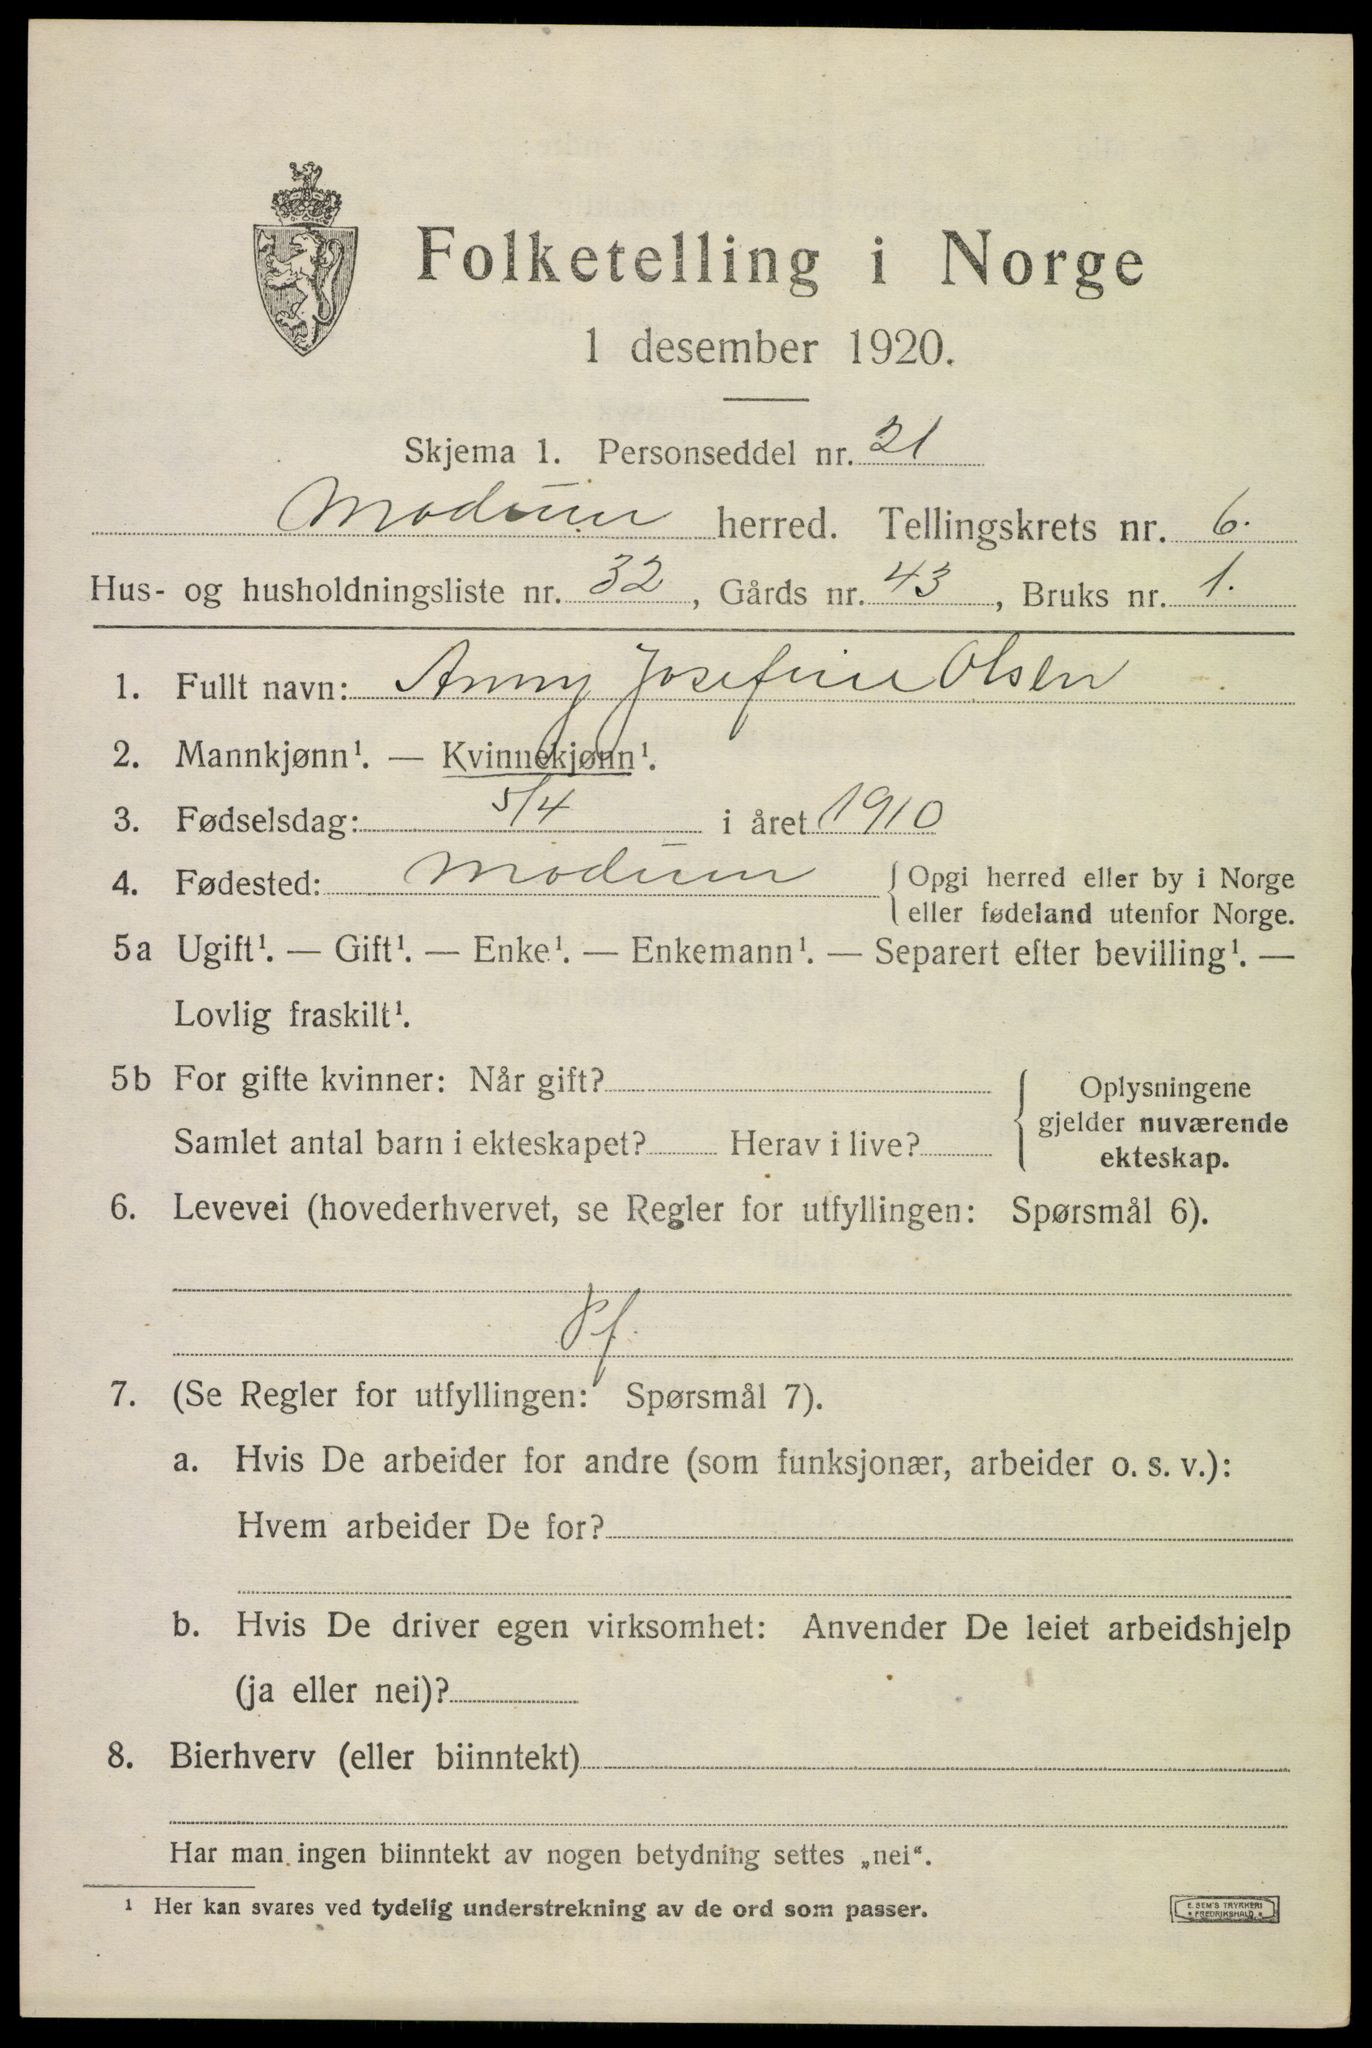 Folketelling i Norge
1 desember 1920.
Skjema 1. Personseddel nr. 21
Modum herred. Tellingskrets nr. 6.
Hus- og husholdningsliste nr. 32, Gårds nr. 43, Bruks nr. 1.
1. Fullt navn: Anny Josefine Olsen
2. Mannkjønn¹. — Kvinnekjønn¹.
3. Fødselsdag: 5/4 i året 1910
4. Fødested: Modum { Opgi herred eller by i Norge
eller fødeland utenfor Norge.
5a Ugift¹. — Gift¹. — Enke¹. — Enkemann¹. — Separert efter bevilling¹. —
Lovlig fraskilt¹.
5b For gifte kvinner: Når gift?
Samlet antal barn i ekteskapet? Herav i live?
{ Oplysningene
gjelder nuværende
ekteskap.
6. Levevei (hovederhvervet, se Regler for utfyllingen: Spørsmål 6).
Pf.
7. (Se Regler for utfyllingen: Spørsmål 7).
a. Hvis De arbeider for andre (som funksjonær, arbeider o. s. v.):
Hvem arbeider De for?
b. Hvis De driver egen virksomhet: Anvender De leiet arbeidshjelp
(ja eller nei)?
8. Bierhverv (eller biinntekt)
Har man ingen biinntekt av nogen betydning settes „nei“.
¹ Her kan svares ved tydelig understrekning av de ord som passer.
E. SEM'S TRYKKERI
* FREDRIKSHALD. *